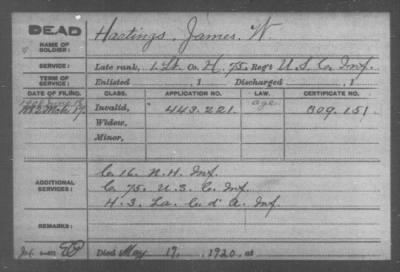 DEAD
NAME OF SOLDIER: Hastings, James W.
SERVICE: Late rank, 1. Lt. Co. H, 75. Reg't U.S.C. Inf.
TERM OF SERVICE: Enlisted , 1 Discharged , 1
DATE OF FILING. CLASS. APPLICATION NO. LAW. CERTIFICATE NO.
1882 Mch. 17. Invalid, " 443.221. age 309.151
Widow,
Minor,
ADDITIONAL SERVICES: C. 16. N.H. Inf.
C. 75. U.S.C. Inf.
H. 3. La. C. d' A. Inf.
REMARKS:
Died May 19, 1920, at